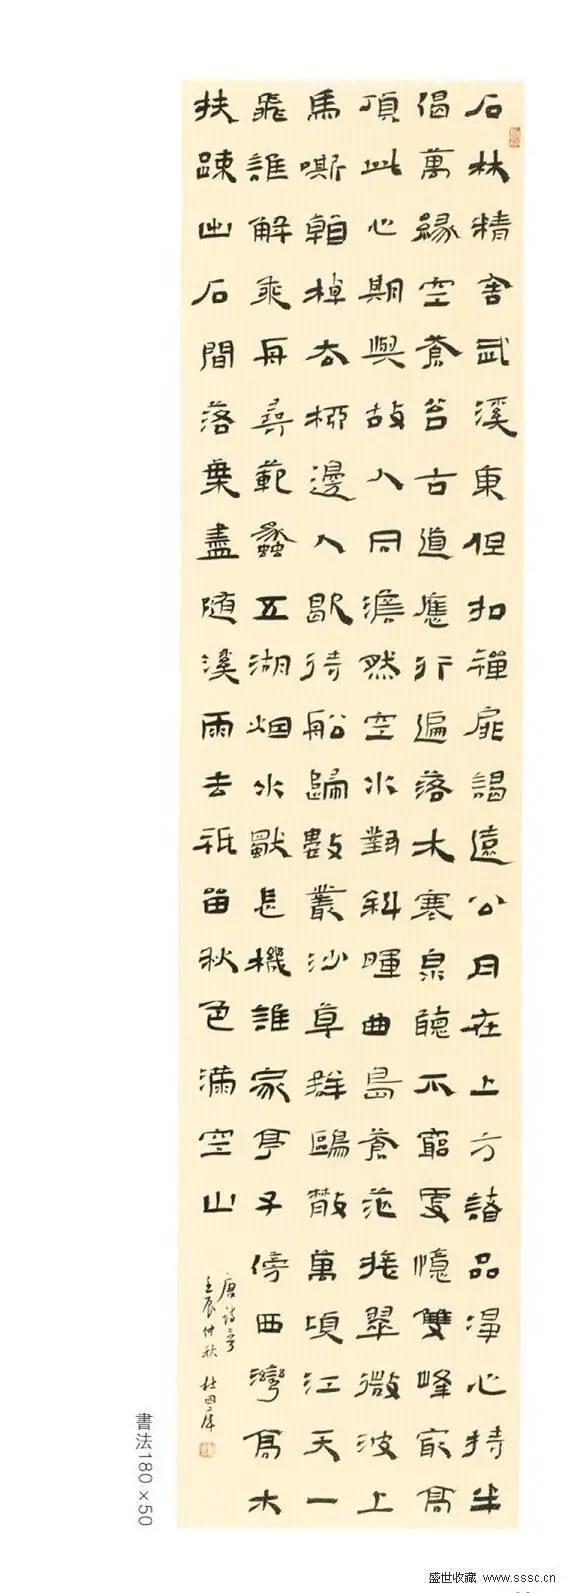 石林精舍武溪東但扣禪扉謁遠公月在上方諸品淨心持半
偈萬緣空蒼苔古道應行遍落木寒泉聽不窮更憶雙峰最高
頂此心期與故人同澹然空水對斜暉曲島蒼茫接翠微波上
馬嘶看棹去柳邊人歇待船歸數叢沙草群鷗散萬頃江天一
飛誰解乘舟尋範蠡五湖烟水獨忘機誰家亭子傍西灣高木
扶踈出石間落葉盡随溪雨去祇留秋色滿空山
唐詩三首
壬辰仲秋 杜
書法180×50
盛世收藏 www.sssc.cn